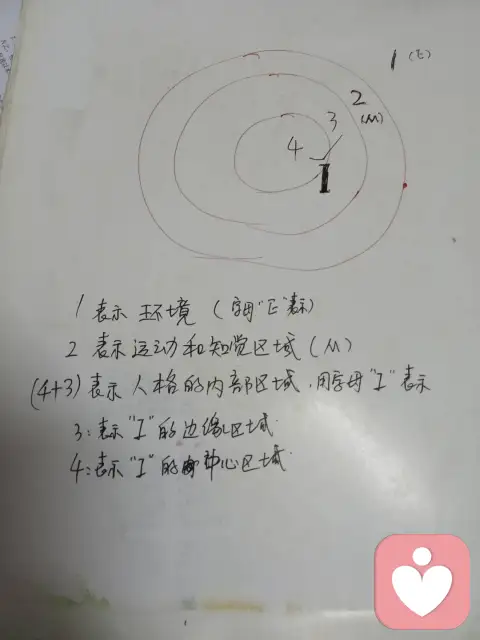 1 (E)
2
(M)
3
4
I
1 表示 环境 (字母“E”表示)
2 表示运动和知觉区域 (M)
(4+3) 表示人格的内部区域,用字母“I”表示
3:表示“I”的边缘区域
4:表示“I”的中心区域